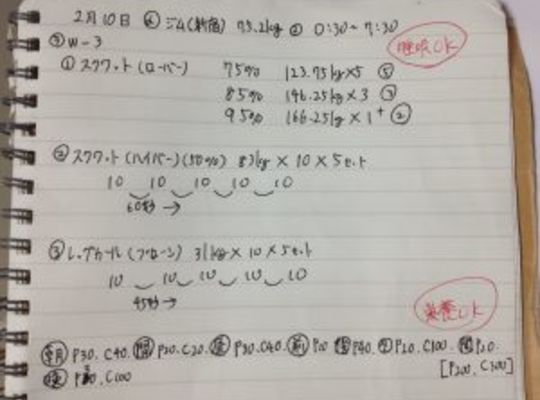 2月10日 ⊕ ジム(新宿) 73.2kg 0:30~7:30
睡眠OK
③W-3
①スクワット(ローバー) 75% 123.75kg×5 ⑤
85% 146.25kg×3 ③
95% 166.25kg×1+ ②
②スクワット(ハイバー)(50%) 87kg×10×5セット
10 10 10 10 10
60秒→
③レッグカール(プローン) 31kg×10×5セット
10 10 10 10 10
45秒→
栄養OK
朝 P30.C40. 間 P20.C20. 昼 P30.C40. 前 P20 P40. P20.C100. P20.
[P200.C300]
夜 C100